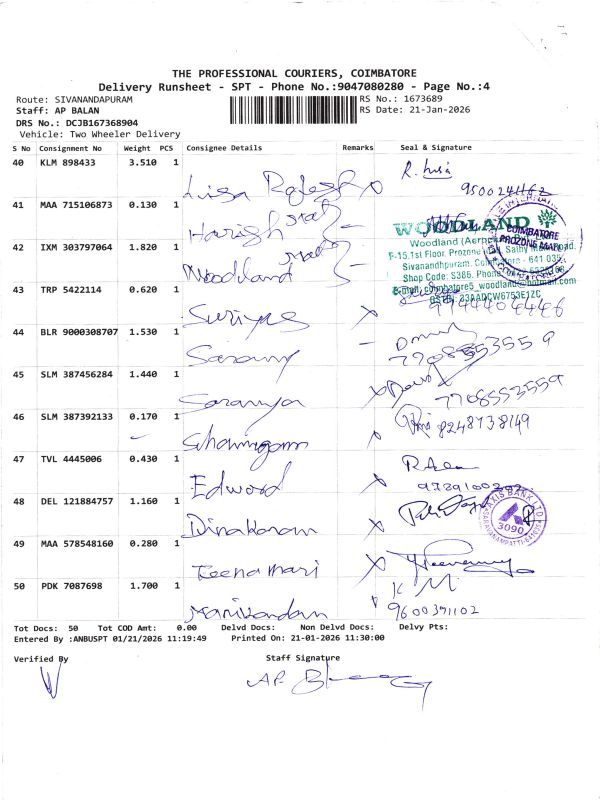 THE PROFESSIONAL COURIERS, COIMBATORE
Delivery Runsheet - SPT - Phone No.:9047080280 - Page No.:4
Route: SIVANANDAPURAM
RS No.: 1673689
Staff: AP BALAN
RS Date: 21-Jan-2026
DRS No.: DCJB167368904
Vehicle: Two Wheeler Delivery
S No Consignment No Weight PCS Consignee Details Remarks Seal & Signature
40 KLM 898433 3.510 1
Lisa Rajesh
9500241162
41 MAA 715106873 0.130 1
Harish
WOODLAND
COIMBATORE
PROZONE MALL
42 IXM 303797064 1.820 1
Woodland
Sivanandhpuram, Coimbatore - 641 035
Shop Code: S386. Phone:
E-mail: coimbatore5_woodland@hotmail.com
GSTIN: 33AADCW6753E1ZC
43 TRP 5422114 0.620 1
Suriyas
44 BLR 9000308707 1.530 1
Sarany
7708553559
45 SLM 387456284 1.440 1
Saranya
7708553559
46 SLM 387392133 0.170 1
8248738149
47 TVL 4445006 0.430 1
Edword
48 DEL 121884757 1.160 1
Dinakaran
AXIS BANK LTD
3090
49 MAA 578548160 0.280 1
Teena Mari
50 PDK 7087698 1.700 1
Manikandan
K M
9600391102
Tot Docs: 50 Tot COD Amt: 0.00 Delvd Docs: Non Delvd Docs: Delvy Pts:
Entered By :ANBUSPT 01/21/2026 11:19:49 Printed On: 21-01-2026 11:30:00
Verified By Staff Signature
AP